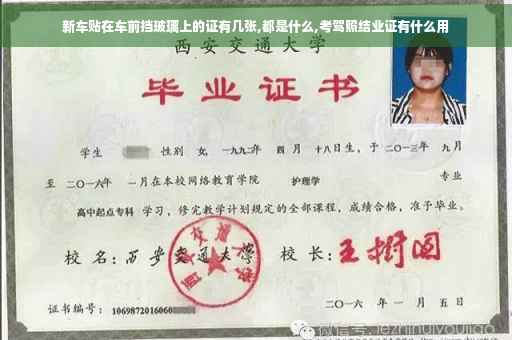 新车贴在车前挡玻璃上的证有几张,都是什么,考驾照结业证有什么用
西安交通大学
毕业证书
学生 性别 女, 一九九二年 四月 十八日生, 于 二〇一三年 九月
至 二〇一六年 一月在本校网络教育学院 护理学 专业
高中起点专科 学习, 修完教学计划规定的全部课程, 成绩合格, 准予毕业。
校名: 西安交通大学 校长: 王树国
西安交通大学
证书编号: 1069872016060
二〇一六年 一月 五日
微信号: jezhihuiyoujiao